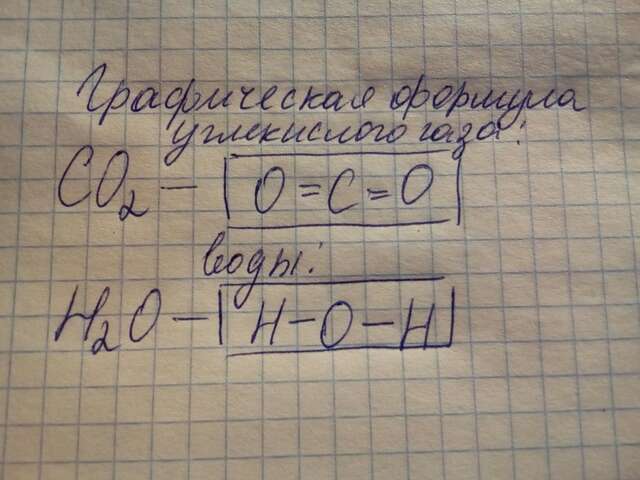 Графическая формула
углекислого газа:
CO₂ — O=C=O
воды:
H₂O — H–O–H